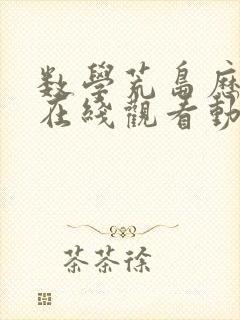 数學荒島歷
在綫觀看動
茶茶徐